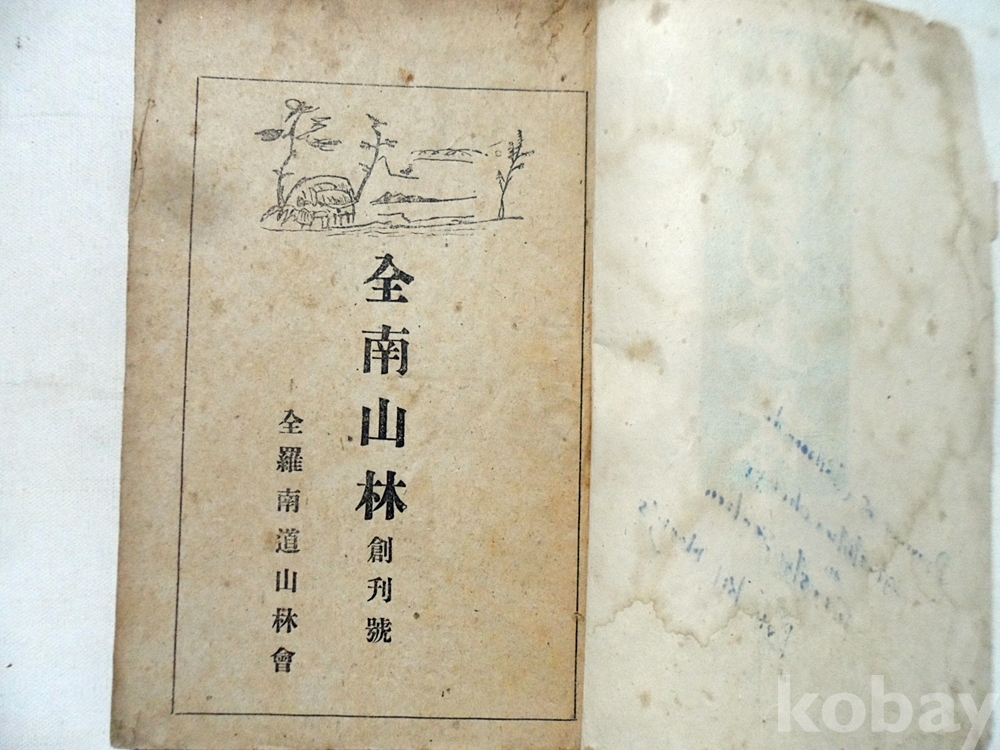 全南山林創刊號
全羅南道山林會
kobay